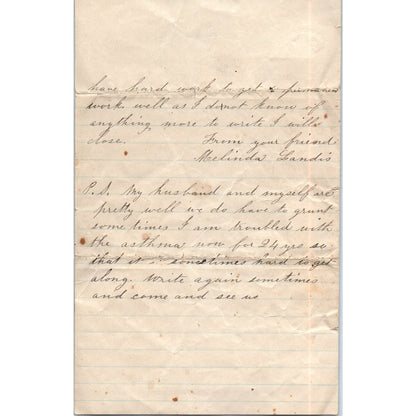 have hard work to get a permanen
work well as I do not know of
anything more to write I will
close. From your friend
Melinda Landis
P.S. My husband and myself are
pretty well we do have to grunt
some times I am troubled with
the asthma now for 24 yrs so
that it is sometimes hard to get
along. Write again sometimes
and come and see us